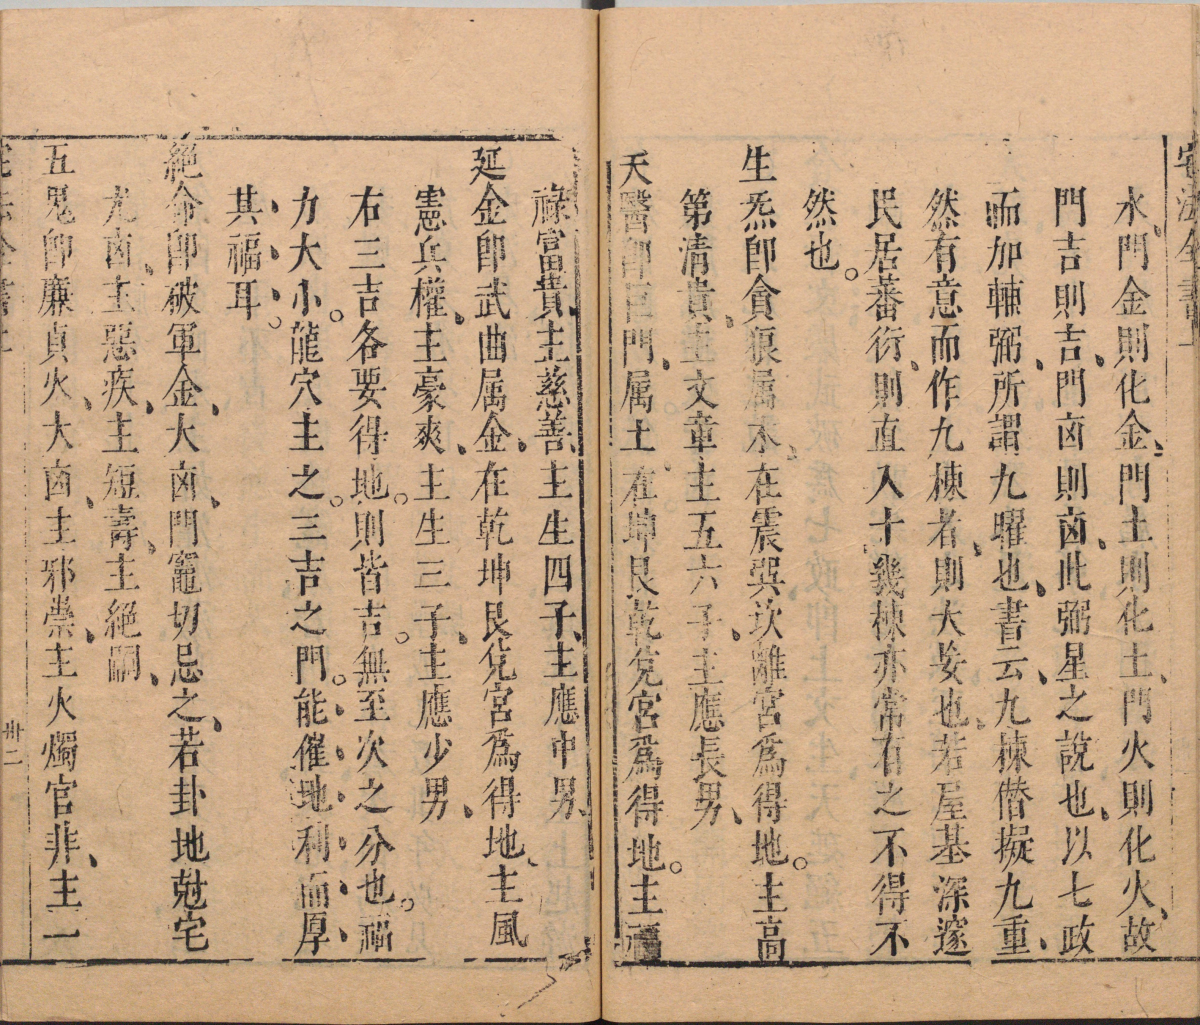 宅法全書上
水、門金則化金、門土則化土、門火則化火、故
門吉則吉、門凶則凶、此弼星之說也、以七政
而加輔弼、所謂九曜也、書云、九棟僭擬九重、
然有意而作九棟者、則大妄也、若屋基深邃
民居蕃衍、則直入十幾棟亦常有之不得不
然也。
生炁卽貪狼属木、在震巽坎離宮爲得地。主高
第清貴、主文章、主五六子、主應長男、
天醫卽巨門、属土、在坤艮乾兌宮爲得地。主福
祿富貴、主慈善、主生四子、主應中男、
延金卽武曲属金、在乾坤艮兌宮爲得地、主風
憲兵權、主豪爽、主生三子、主應少男、
右三吉各要得地。則皆吉。無至次之分也。福
力大小。龍穴主之。三吉之門。能催地利而厚
其福耳。
絕命卽破軍金、大凶、門竈切忌之、若卦地尅宅
尤凶、主惡疾、主短壽、主絕嗣、
五鬼卽廉貞火、大凶、主邪祟、主火燭官非、主一
宅法全書上
卅二